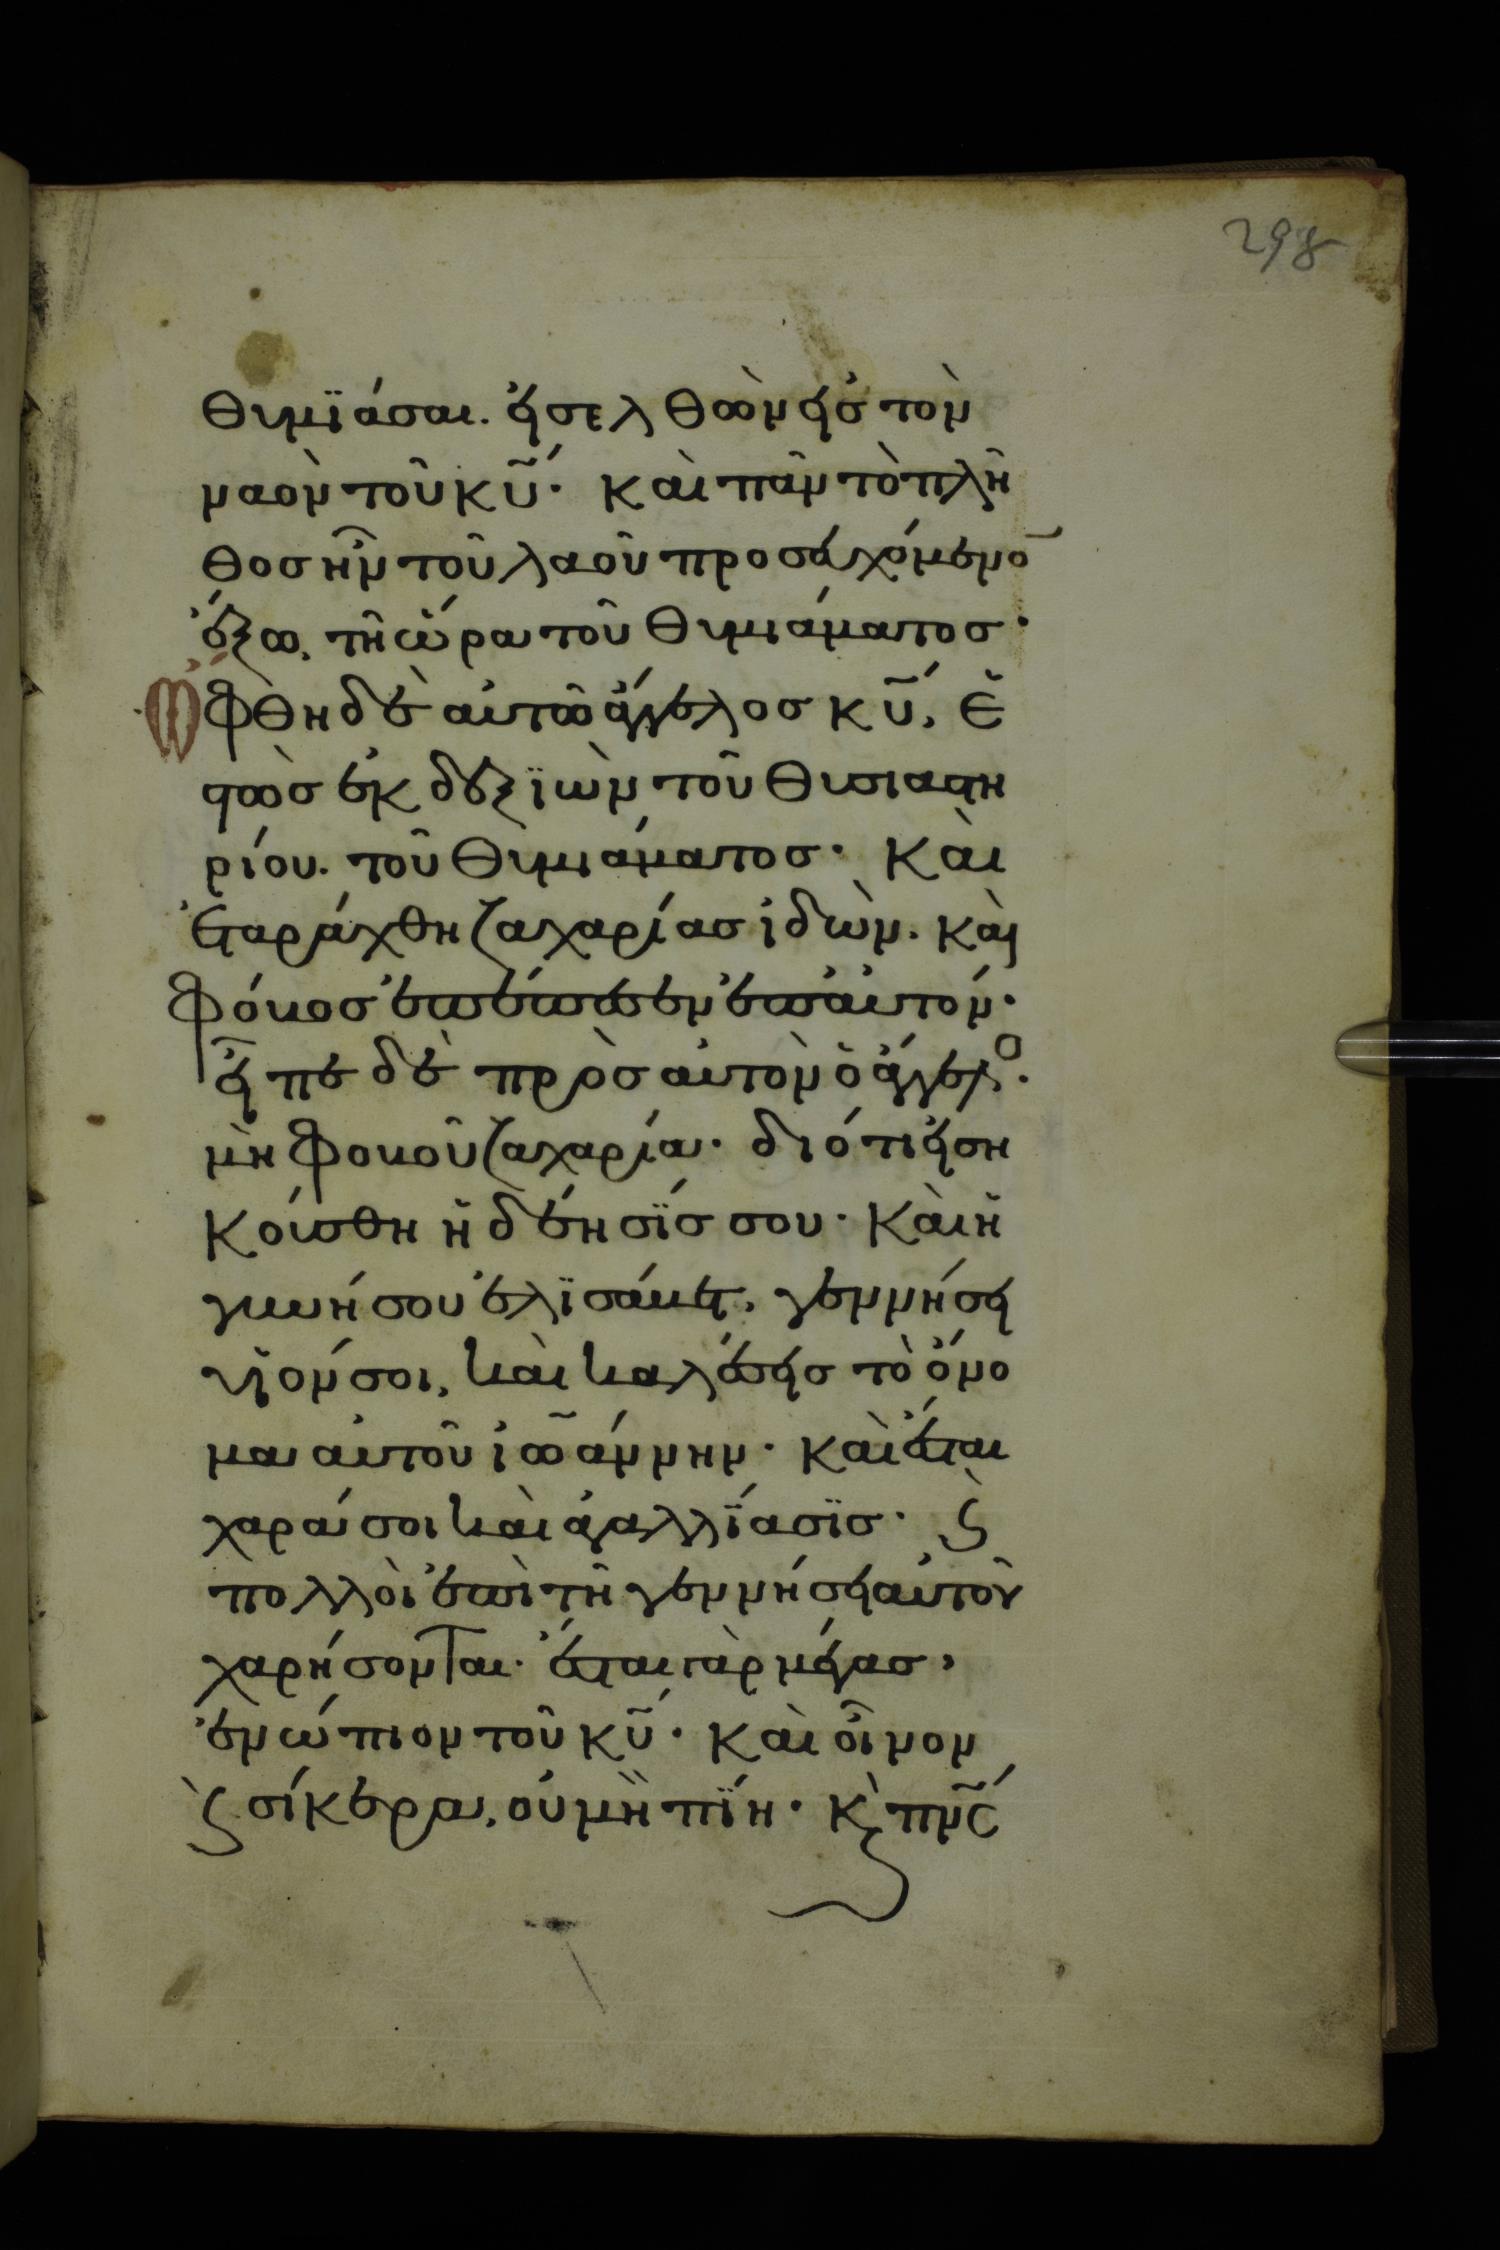 298
θυμϊάσαι. εἰσελθὼν εἰς τὸν
ναὸν τοῦ κ̅υ̅· καὶ πᾶν τὸ πλῆ
θοσ ἦν τοῦ λαοῦ προσευχόμενο̅
ἔξω, τῆ ὥρα τοῦ θυμιάματοσ·
Ὤφθη δὲ αὐτῶ ἄγγελοσ κ̅υ̅, ἑ
στὼσ ἐκ δεξϊὼν τοῦ θυσιαστη
ρίου. τοῦ θυμιάματοσ· καὶ
ἐταράχθη ζαχαρίασ ἰδὼν. καὶ
φόβοσ ἐπέπεσεν ἐπ' αὐτόν·
εἶπε δὲ πρὸσ αὐτὸν ὁ ἄγγελο·
μὴ φοβοῦ ζαχαρία· διότι εἰση
κούσθη ἡ δέησϊσ σου· καὶ ἡ
γυνή σου ἐλϊσάβετ, γεννήσει
υἱόν σοι, καὶ καλέσεισ τὸ ὄνο
μα αὐτοῦ ἰω̅άννην· καὶ ἔσται
χαρά σοι καὶ ἀγαλλϊάσϊσ· ϗ
πολλοὶ ἐπὶ τῆ γεννήσει αὐτοῦ
χαρήσονται. ἔσται γὰρ μέγασ,
ἐνώπιον τοῦ κ̅υ̅· καὶ οἶνον
ϗ σίκερα, οὐ μὴ πΐη· ϗ π̅ν̅σ̅